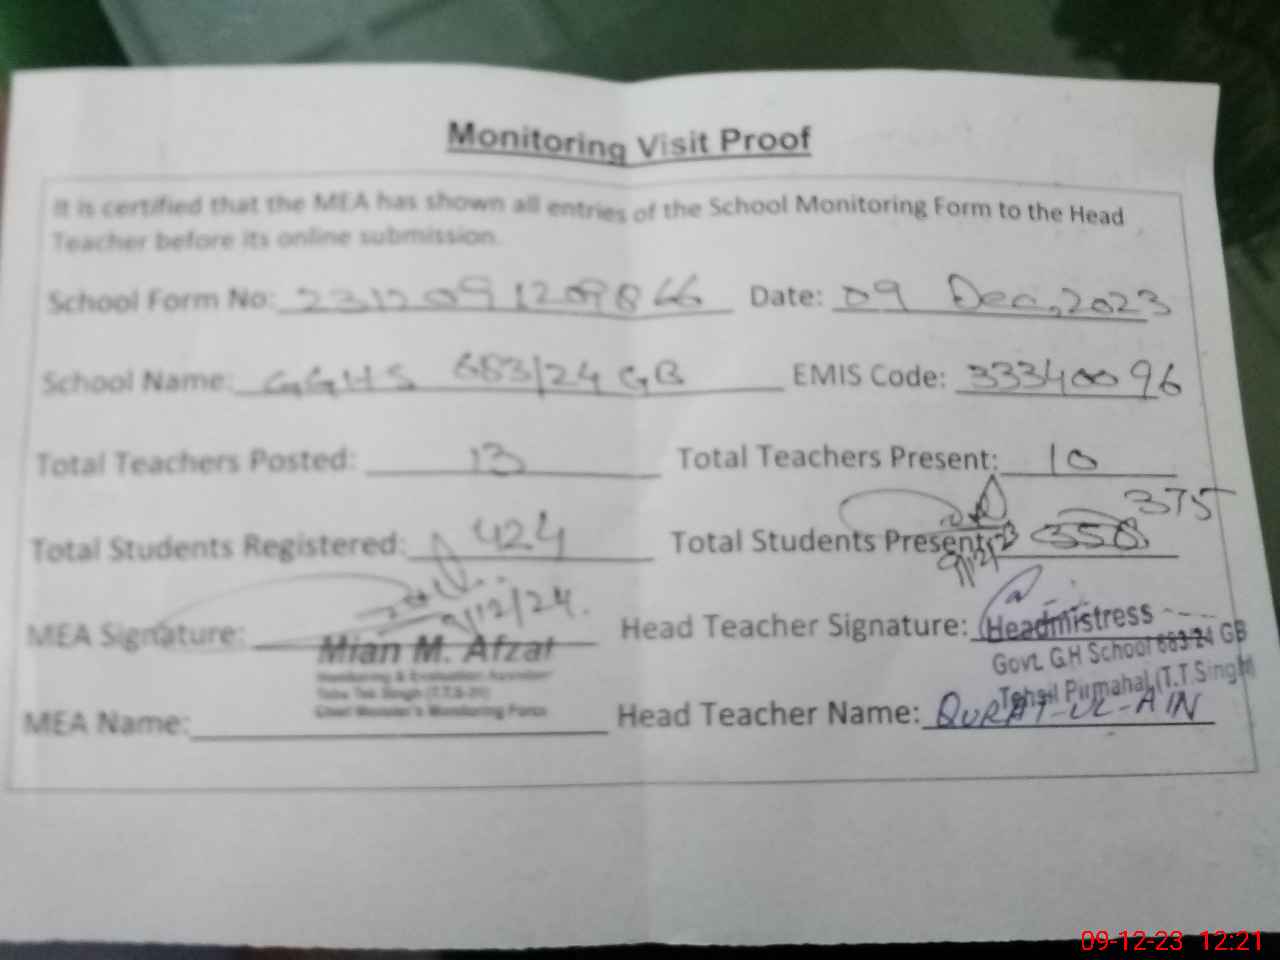 Monitoring Visit Proof
It is certified that the MEA has shown all entries of the School Monitoring Form to the Head
Teacher before its online submission.
School Form No: 2312091209866 Date: 09 Dec, 2023
School Name: GGHS 683/24 GB EMIS Code: 33340096
Total Teachers Posted: 13 Total Teachers Present: 10
375
Total Students Registered: 424 Total Students Present: 358
9/12/23
9/12/24.
MEA Signature: Head Teacher Signature: Headmistress
Mian M. Afzal Govt. G.H School 683/24 GB
Monitoring & Evaluation Assistant Tehsil Pirmahal (T.T.Singh)
Toba Tek Singh (T.T.S-31)
Chief Minister's Monitoring Force
MEA Name: Head Teacher Name: QURAT-UL-AIN
09-12-23 12:21